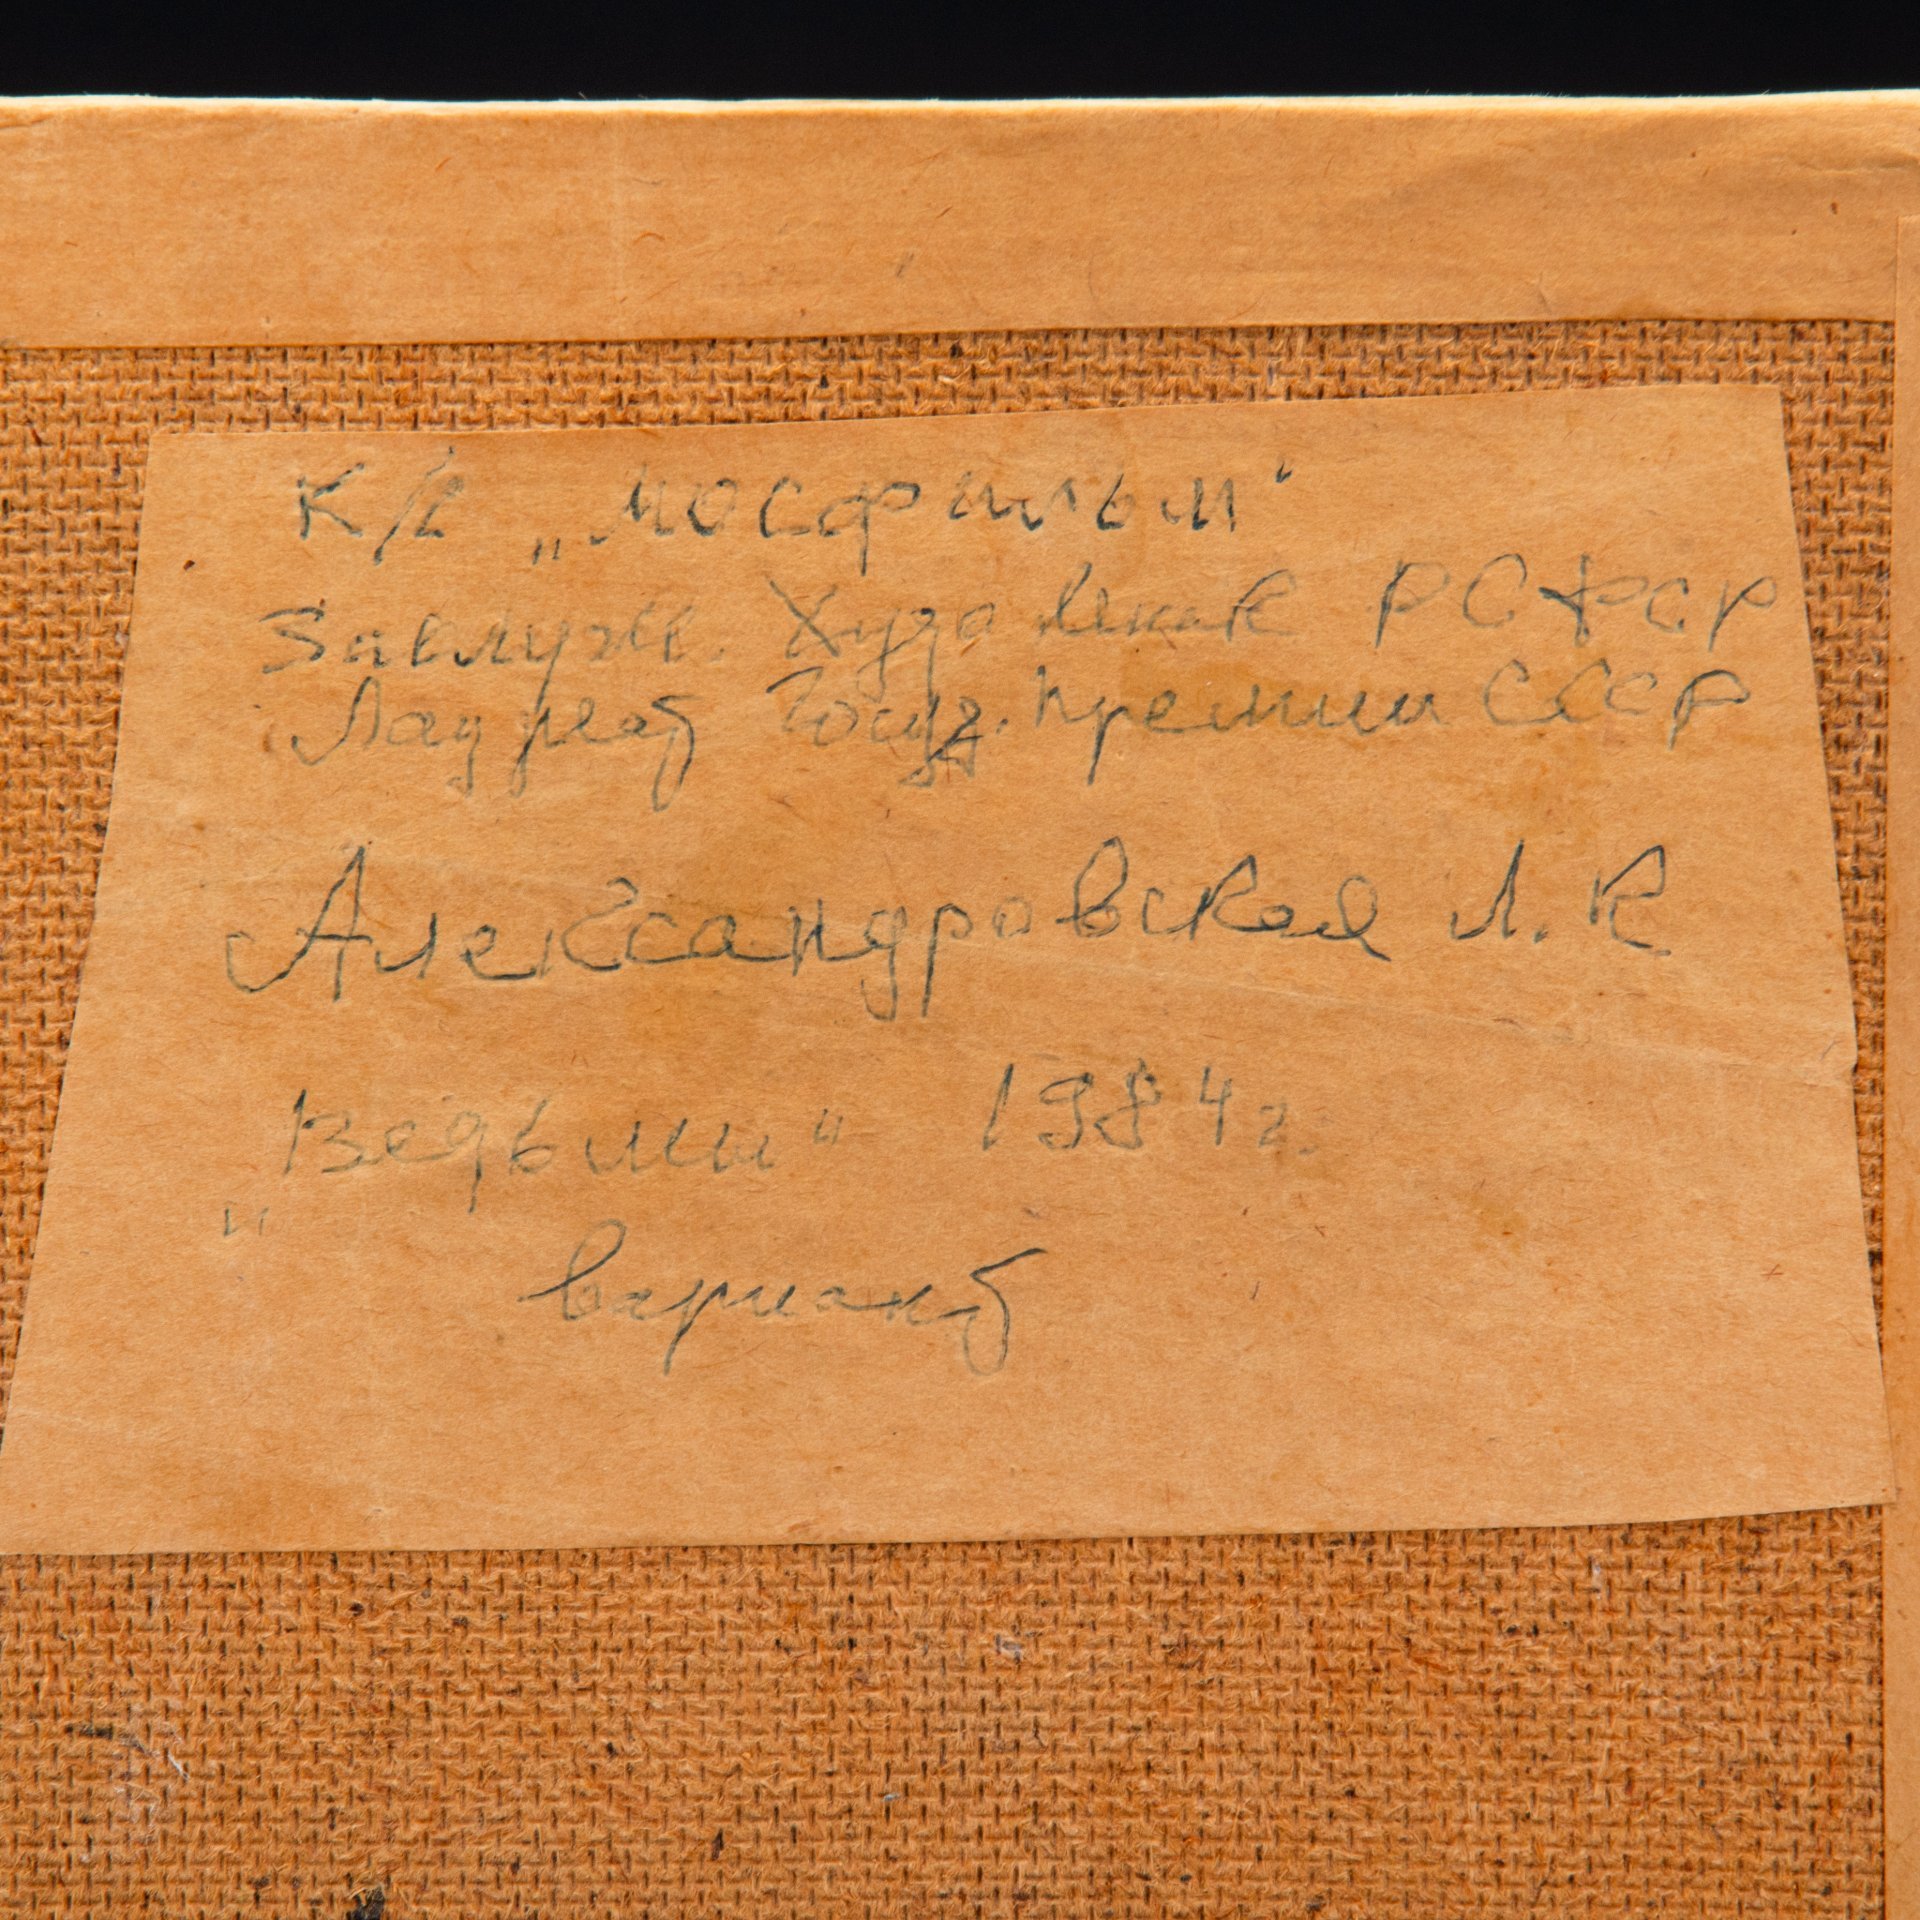 К/с „Мосфильм"
Заслуж. Художник РСФСР
Лауреат Госуд. премии СССР
Александровская Л. К
„Ведьмы" 1984 г.
вариант